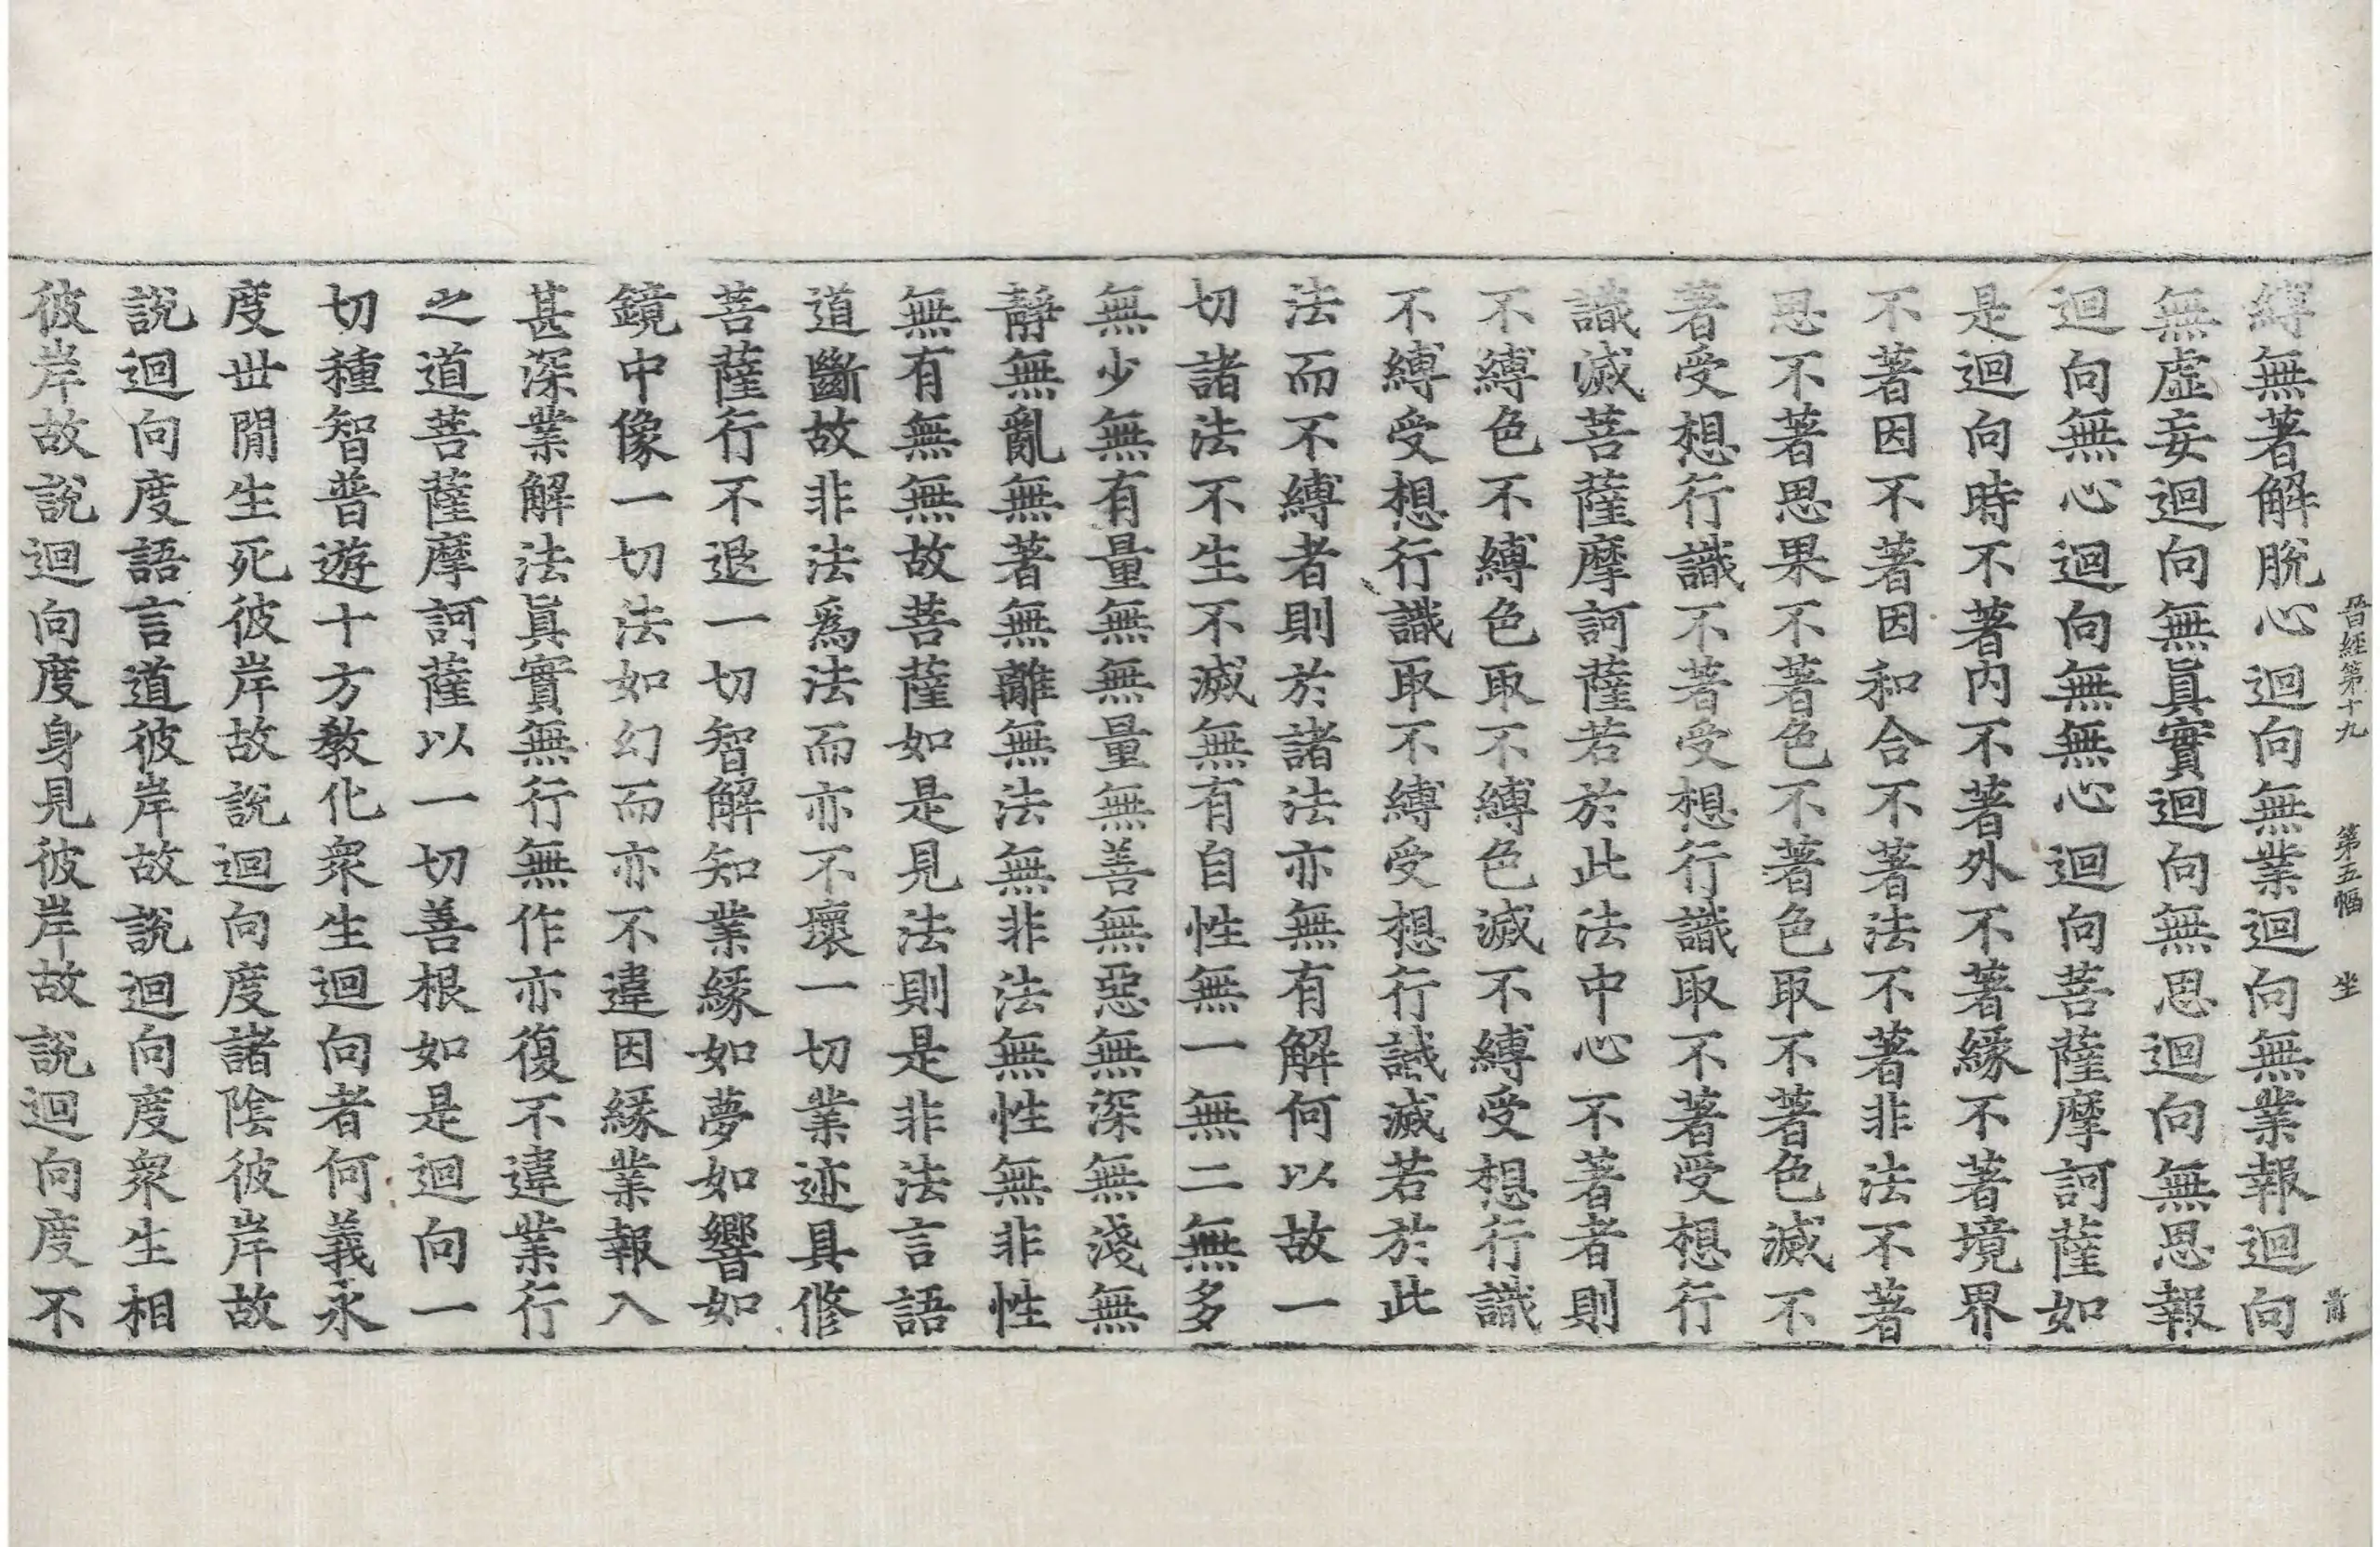 晉經第十九　第五幅　坐
縛無著解脫心迴向無業迴向無業報迴向
無虛妄迴向無眞實迴向無思迴向無思報
迴向無心迴向無無心迴向菩薩摩訶薩如
是迴向時不著内不著外不著緣不著境界
不著因不著因和合不著法不著非法不著
思不著思果不著色不著色取不著色滅不
著受想行識不著受想行識取不著受想行
識滅菩薩摩訶薩若於此法中心不著者則
不縛色不縛色取不縛色滅不縛受想行識
不縛受想行識取不縛受想行識滅若於此
法而不縛者則於諸法亦無有解何以故一
切諸法不生不滅無有自性無一無二無多
無少無有量無無量無善無惡無深無淺無
靜無亂無著無離無法無非法無性無非性
無有無無故菩薩如是見法則是非法言語
道斷故非法爲法而亦不壞一切業迹具修
菩薩行不退一切智解知業緣如夢如響如
鏡中像一切法如幻而亦不違因緣業報入
甚深業解法眞實無行無作亦復不違業行
之道菩薩摩訶薩以一切善根如是迴向一
切種智普遊十方敎化衆生迴向者何義永
度世閒生死彼岸故說迴向度諸陰彼岸故
說迴向度語言道彼岸故說迴向度衆生相
彼岸故說迴向度身見彼岸故說迴向度不